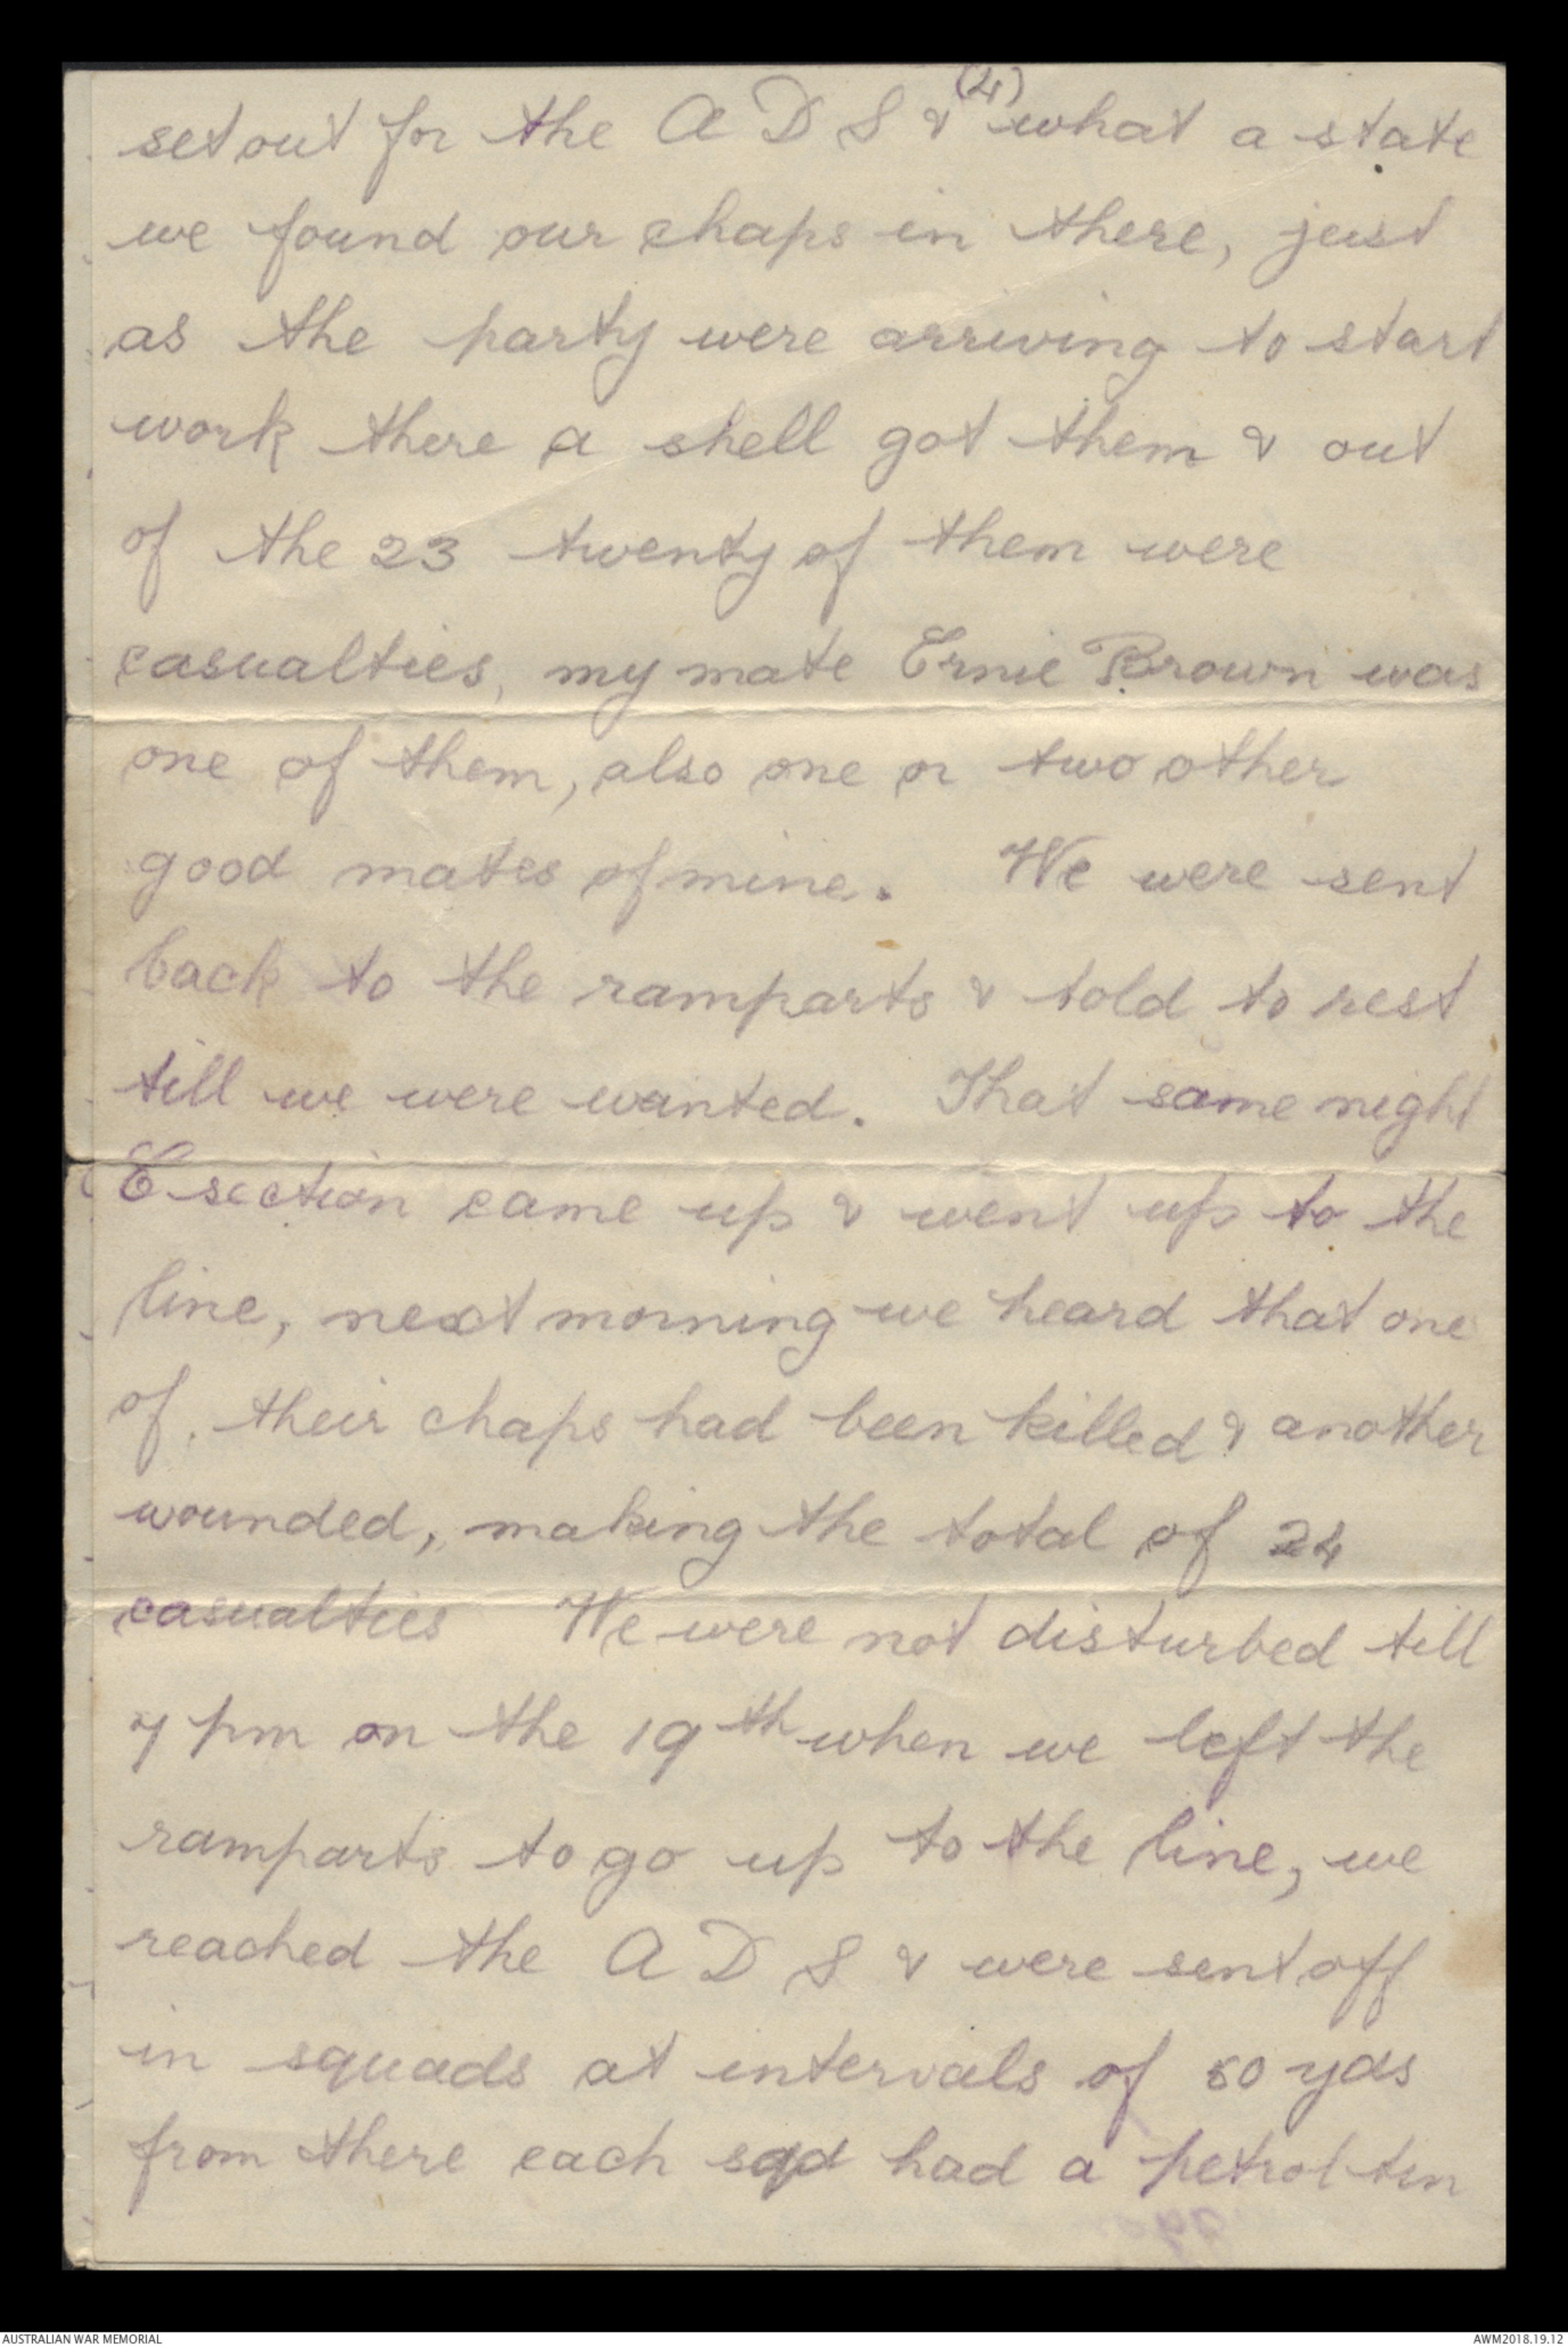 (4)
set out for the A D S & what a state
we found our chaps in there, just
as the party were arriving to start
work there a shell got them & out
of the 23 twenty of them were
casualties, my mate Ernie Brown was
one of them, also one or two other
good mates of mine. We were sent
back to the ramparts & told to rest
till we were wanted. That same night
C section came up & went up to the
line, next morning we heard that one
of their chaps had been killed & another
wounded, making the total of 24
casualties We were not disturbed till
7 pm on the 19th when we left the
ramparts to go up to the line, we
reached the A D S & were sent off
in squads at intervals of 50 yds
from there each sqd had a petrol tin
AUSTRALIAN WAR MEMORIAL
AWM2018.19.12